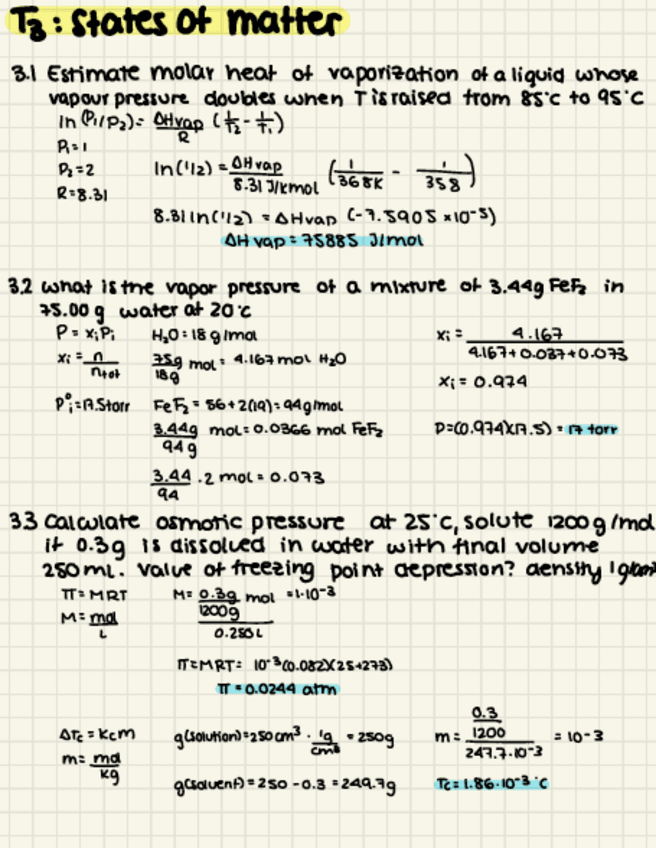 T3: States of matter
3.1 Estimate molar heat of vaporization of a liquid whose
vapour pressure doubles when T is raised from 85°C to 95°C
ln (P1/P2) = ΔHvap/R (1/T2 - 1/T1)
P1 = 1
P2 = 2
R = 8.31
ln(1/2) = ΔHvap/8.31 J/kmol (1/368K - 1/358)
8.31 ln(1/2) = ΔHvap (-7.5905 × 10^-5)
ΔHvap = 75885 J/mol
3.2 what is the vapor pressure of a mixture of 3.44g FeF2 in
75.00 g water at 20°C
P = xiPi
xi = n/ntot
P°i = 17.5 torr
H2O = 18 g/mol
75g/18g mol = 4.167 mol H2O
FeF2 = 56 + 2(19) = 94 g/mol
3.44g/94g mol = 0.0366 mol FeF2
3.44/94 . 2 mol = 0.073
xi = 4.167/4.167+0.037+0.073
xi = 0.974
P = (0.974)(17.5) = 17 torr
3.3 Calculate osmotic pressure at 25°C, solute 1200 g/mol
if 0.3g is dissolved in water with final volume
250 ml. Value of freezing point depression? density 1g/cm³
π = MRT
M = mol/L
M = 0.3g/1200g mol/0.250L = 1·10^-3
π = MRT = 10^-3 (0.082)(25+273)
π = 0.0244 atm
ΔTc = Kcm
m = mol/kg
g(solution) = 250cm³ · 1g/cm³ = 250g
g(solvent) = 250 - 0.3 = 249.7g
m = 0.3/1200/247.7·10^-3 = 10^-3
Tc = 1.86·10^-3 °C